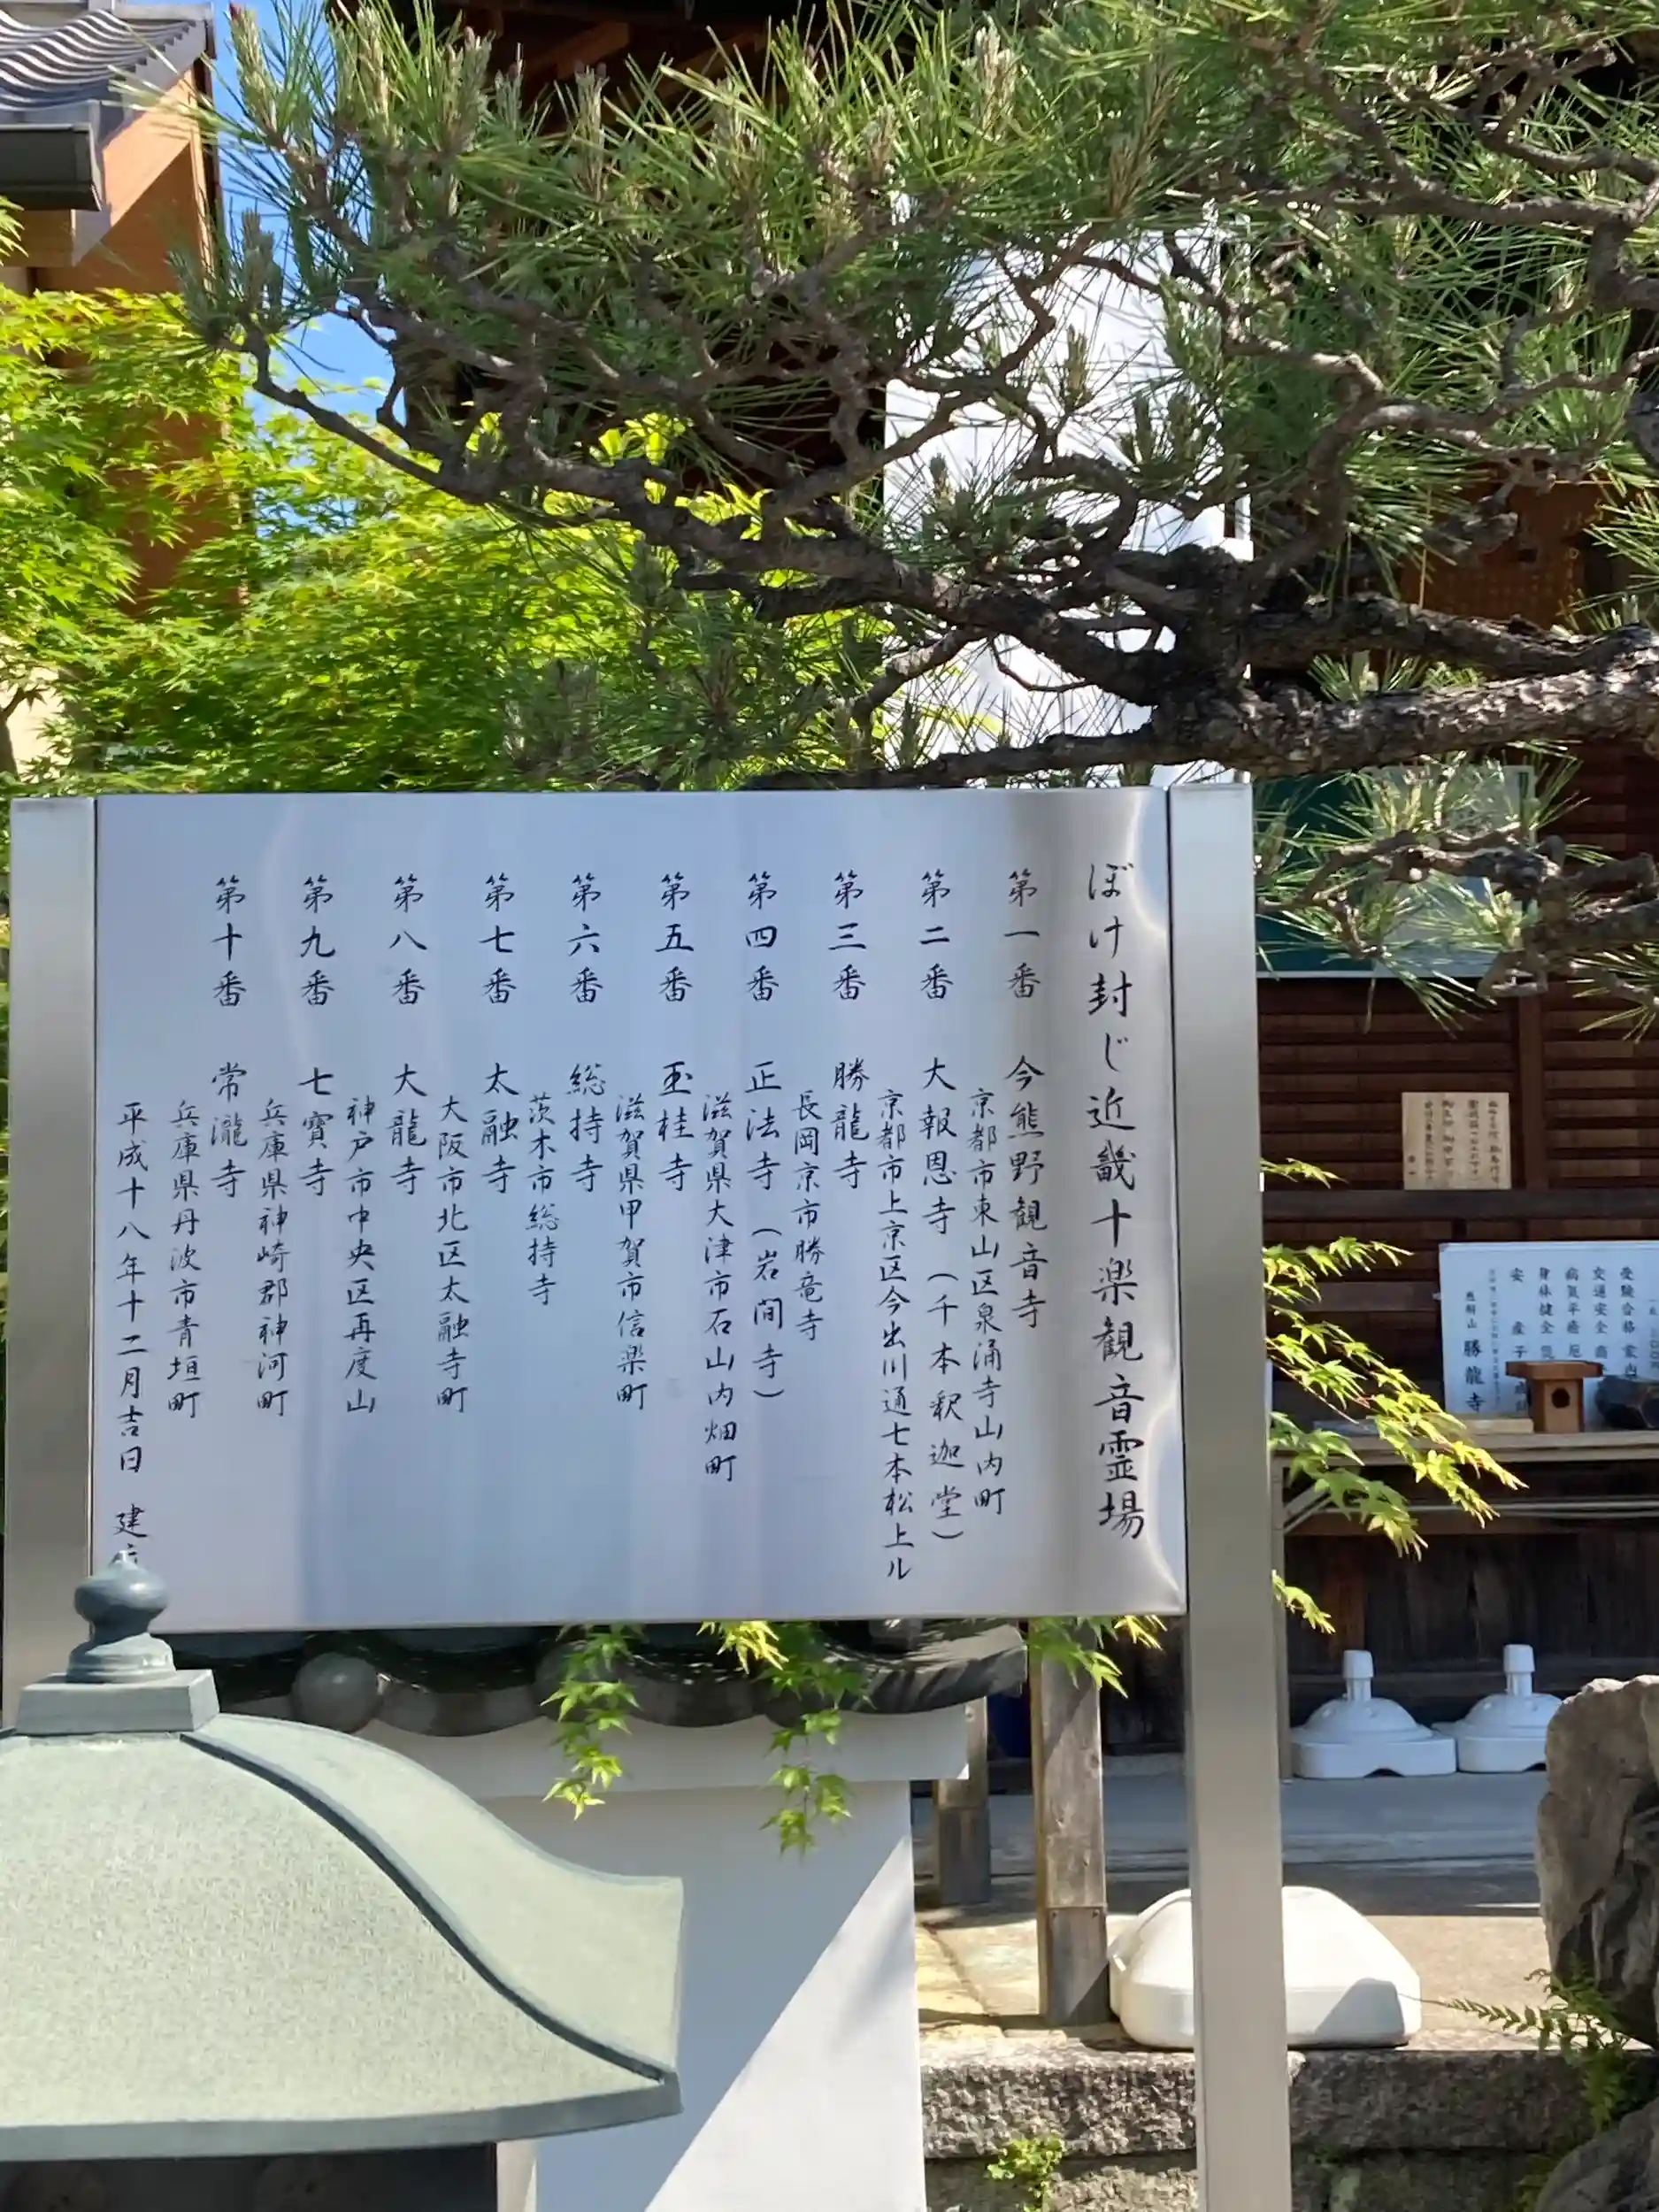 ぼけ封じ近畿十楽観音霊場
第一番 今熊野観音寺
京都市東山区泉涌寺山内町
第二番 大報恩寺（千本釈迦堂）
京都市上京区今出川通七本松上ル
第三番 勝龍寺
長岡京市勝竜寺
第四番 正法寺（岩間寺）
滋賀県大津市石山内畑町
第五番 玉桂寺
滋賀県甲賀市信楽町
第六番 総持寺
茨木市総持寺
第七番 太融寺
大阪市北区太融寺町
第八番 大龍寺
神戸市中央区再度山
第九番 七寳寺
兵庫県神崎郡神河町
第十番 常瀧寺
兵庫県丹波市青垣町
平成十八年十二月吉日 建
受験合格 家内
交通安全 商
病気平癒 厄
身体健全
安産 子
勝龍寺